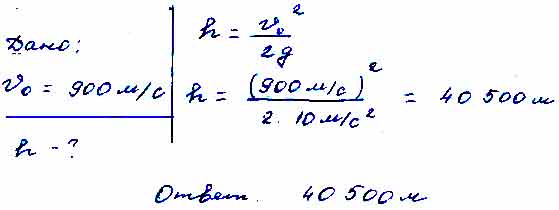 Дано:
v₀ = 900 м/с
h - ?
h = v₀² / 2g
h = (900 м/с)² / 2 · 10 м/с² = 40 500 м
Ответ. 40 500 м